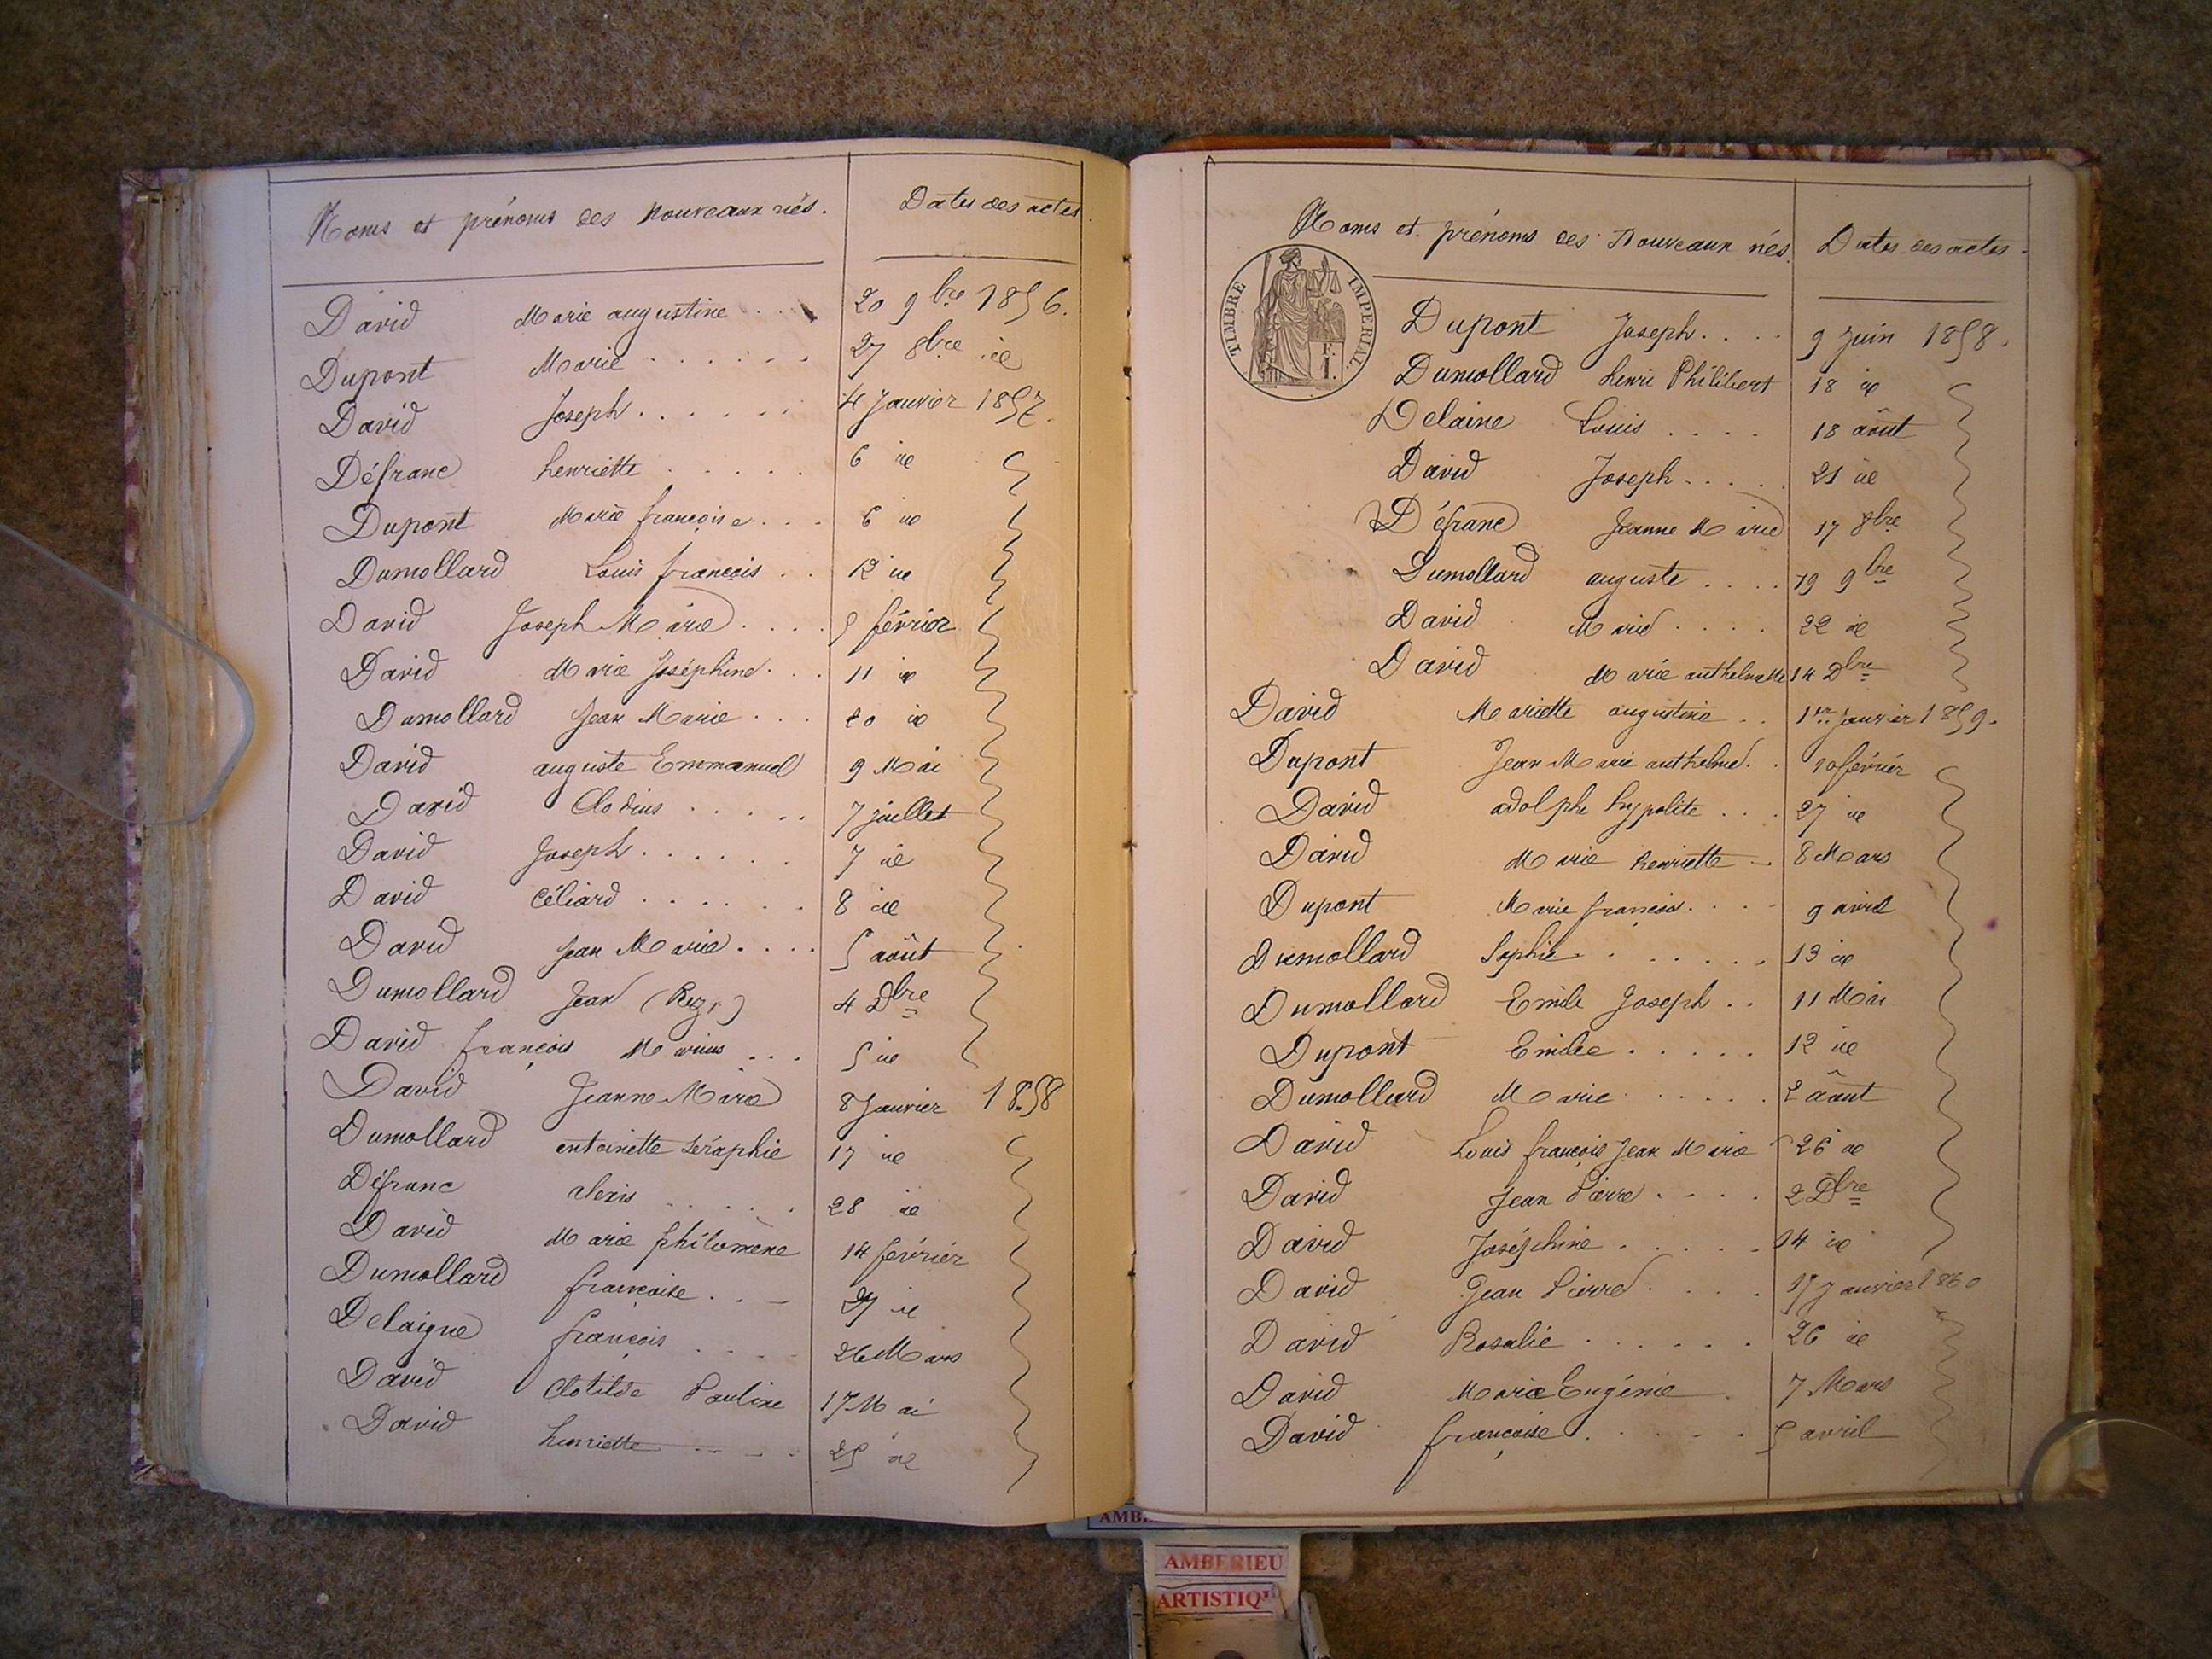 Noms et prénoms des nouveaux nés. Dates des actes.
David Marie augustine . . . 20 9bre 1856.
Dupont Marie . . . . . . 27 8bre id
David Joseph . . . . . . 4 Janvier 1857.
Défranc henriette . . . . . 6 id
Dupont Marie françoise . . . 6 id
Dumollard Louis françois . . 12 id
David Joseph Marie . . . . 5 février
David Marie Joséphine . . . 11 id
Dumollard Jean Marie . . . 20 id
David auguste Emmanuel 9 Mai
David Clodius . . . . . 7 juillet
David Joseph . . . . . . 7 id
David Céliard . . . . . . 8 id
David Jean Marie . . . . 5 août
Dumollard Jean 4 Dbre
David françois Marius . . . 5 id
David Jeanne Marie 8 Janvier 1858
Dumollard antoinette Séraphie 17 id
Défranc alexis . . . . . 28 id
David Marie philomène 14 février
Dumollard françoise . . . id
Delaigue françois . . . . 26 Mars
David Clotilde Pauline 17 Mai
David henriette . . . 25 id
Noms et prénoms des Nouveaux nés. Dates des actes.
TIMBRE IMPERIAL.
E.
I.
Dupont Joseph . . . . 9 Juin 1858.
Dumollard henri Philibert 18 id
Delaine Louis . . . . 18 août
David Joseph . . . . . 21 id
Défranc Jeanne Marie 17 8bre
Dumollard auguste . . . . 19 9bre
David Marie . . . . 22 id
David Marie anthelmette 14 Dbre
David Mariette augustine . . 1er Janvier 1859.
Dupont Jean Marie anthelme . . 10 février
David adolphe hypolite . . . 27 id
David Marie henriette . . 8 Mars
Dupont Marie françoise . . . . 9 avril
Dumollard Sophie . . . . . . 13 id
Dumollard Emile Joseph . . 11 Mai
Dupont Emilie . . . . . 12 id
Dumollard Marie . . . . . . 2 âout
David Louis françois Jean Marie 26 id
David Jean Pierre . . . . 2 Dbre
David Joséphine . . . . . 14 id
David Jean Pierre . . . . 17 Janvier 1860
David Rosalie . . . . . . 26 id
David Marie Eugénie . 7 Mars
David françoise . . . . . 5 avril
AMBERIEU
ARTISTIQ